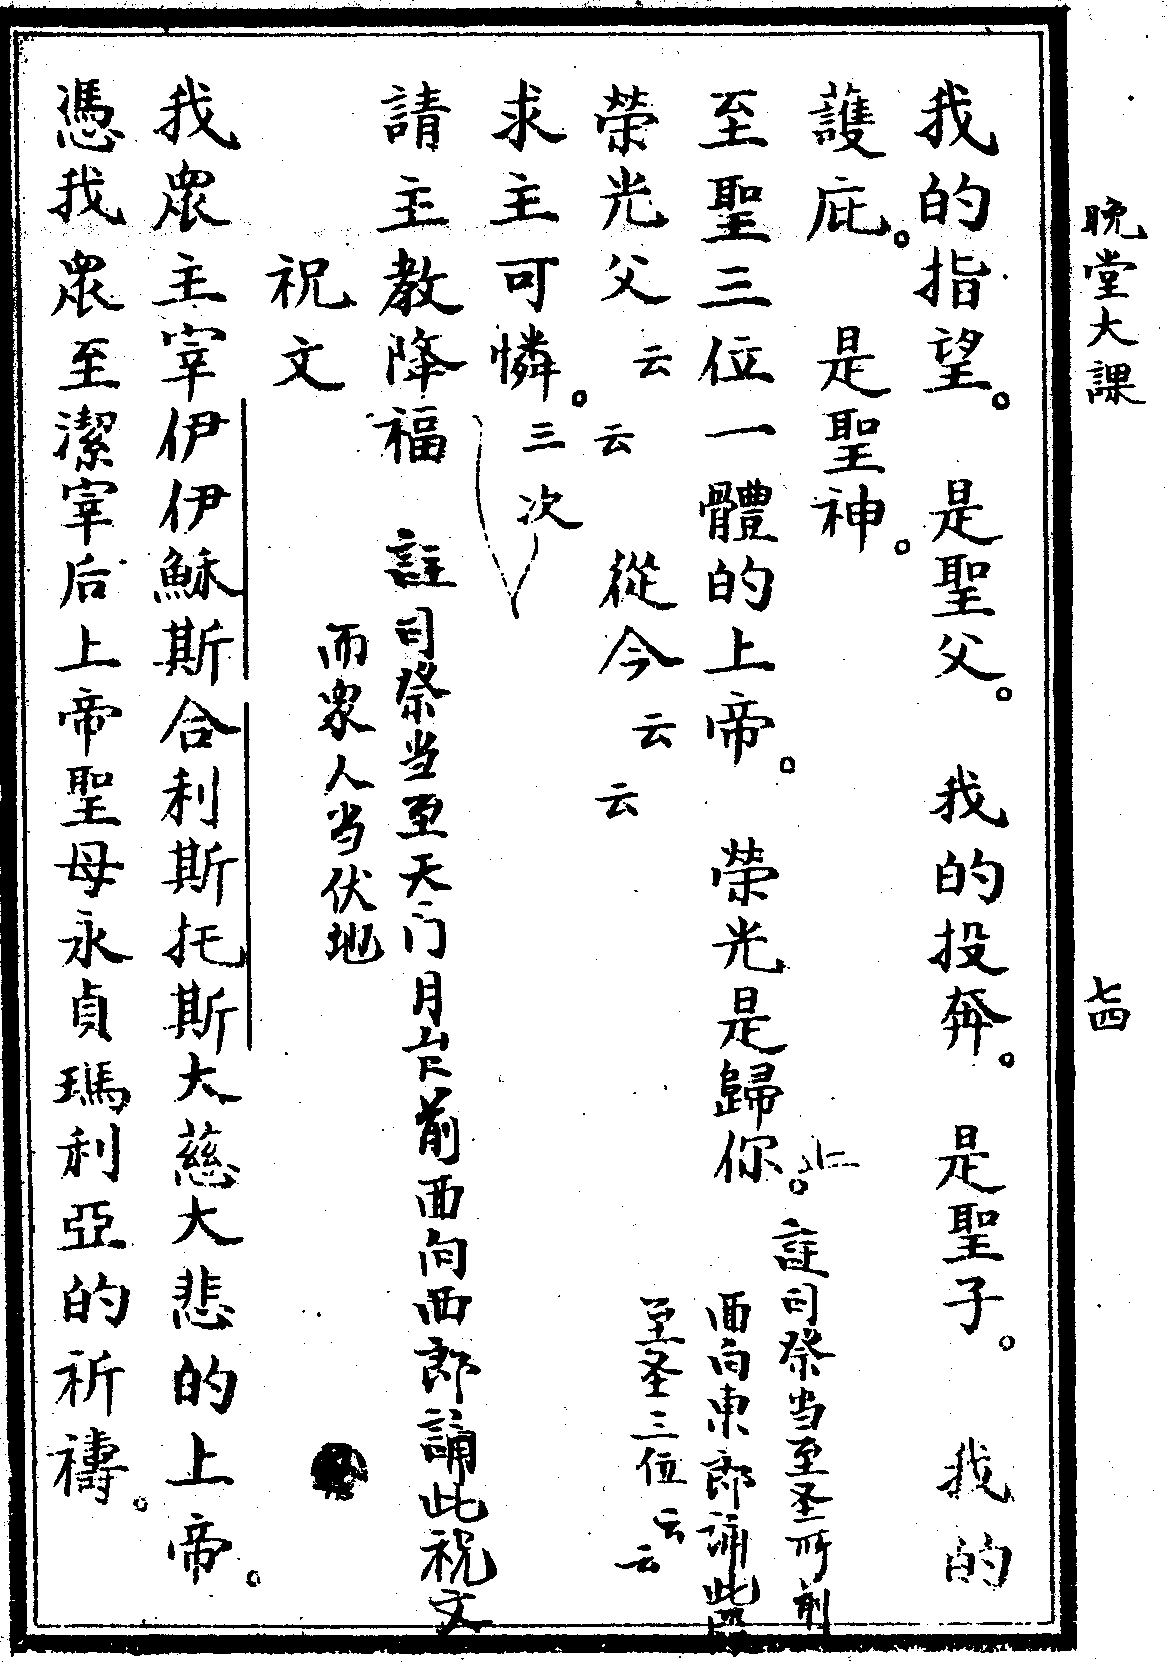 晩堂大課
七四
我的指望。是聖父。我的投奔。是聖子。我的
護庇。是聖神。
至聖三位一體的上帝。榮光是歸你。
註司祭当至圣所前
面向東郎誦此
至圣三位云云
榮光父云云從今云云
求主可憐。三次
請主教降福
註司祭当至天门前面向西郎誦此祝文
而衆人当伏地
祝文
我眾主宰伊伊穌斯合利斯托斯大慈大悲的上帝。
憑我眾至潔宰后上帝聖母永貞瑪利亞的祈禱。